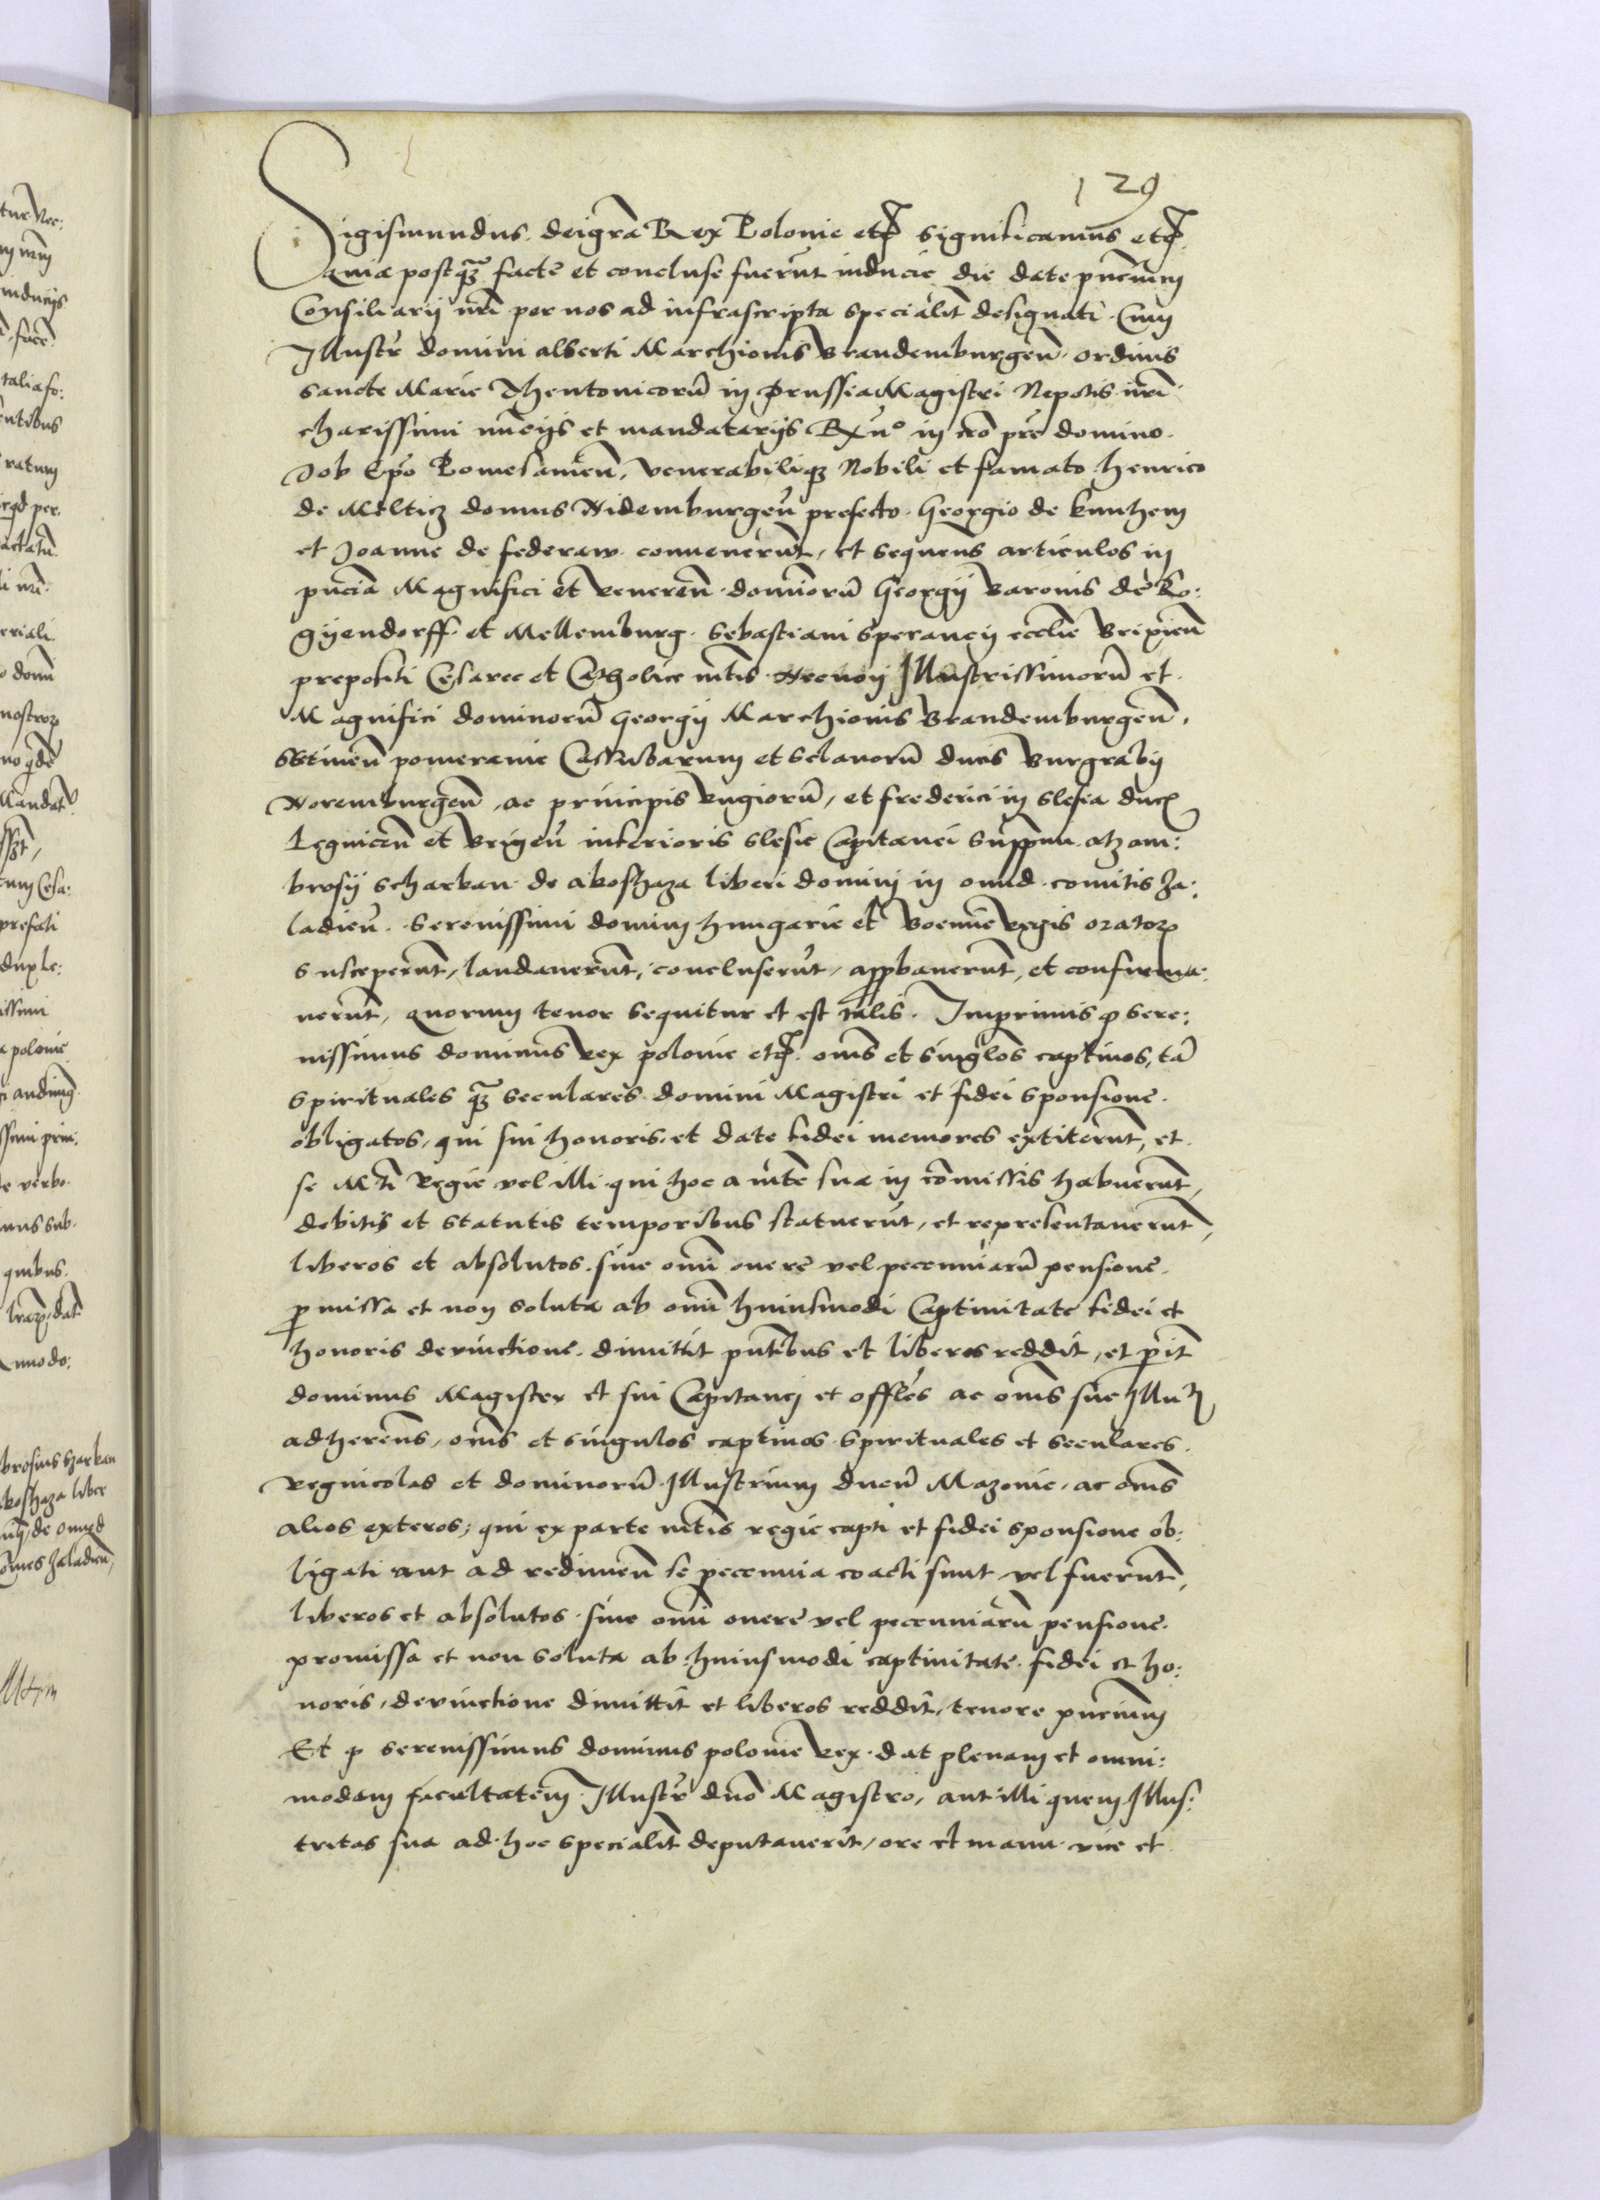 129
Sigismundus deigrā Rex Polonie etc̄ significamus etc̄
Quia postq̄ facte et concluse fuerūt inducie die date pn̄cium
Consiliarij nr̄i per nos ad infrascripta specialit̄ designati Cum
Illustr̄ domini alberti Marchionis Brandemburgen̄ ordinis
sancte Marie Theutonicorū in Prussia Magistri Nepotis nr̄i
charissimi nuncijs et mandatarijs R in cr̄o pr̄e domino
Job Ep̄o Pomesanien̄, venerabiliq3 Nobili et famato henrico
de Milticz domus Nidemburgen̄ prefecto Georgio de kunhem
et Joanne de federaw convenerūt, et sequens articulos in
pn̄cia Magnifici et veneren̄ dominorū Georgij Baronis de Ro:
gijendorff et Mellemburg Sebastiani sperancij eccl̄ie Brixien̄
prepositi Cesaree et Catholice mt̄is Illustrissimorū et
Magnifici dominorū Georgij Marchionis Brandemburgen̄,
Stetinen̄ pomeranie Cassubarum et Sclavorū ducis Burgrabij
Noremburgen̄ ac principis Rugiorū, et frederici in slesia ducis
Legnicen̄ et Brigen̄ inferioris slesie Capitanei suppremi atz am:
brosij scharkan de akoshaza liberi domini in onud comitis Za:
ladien̄. serenissimi domini hungarie et Boemie Regis orator
susceperunt, laudaverunt, concluserūt, approbaverunt, et confirma:
verunt, quorum tenor sequitur et est talis. Imprimis q sere:
nissimus dominus Rex polonie etc̄. om̄s et singlos captivos, tā
spirituales q̄ seculares domini Magistri et fidei sponsione
obligatos, qui sui honoris et date fidei memores extiterunt, et
se Mt̄i Regie vel illi qui hoc a mt̄e sua in cōmissis habuerunt,
debitis et statutis temporibus statuerūt, et representaverunt,
liberos et absolutos sine om̄i onere vel pecuniarū pensione
promissa et non soluta ab om̄i huiusmodi Captivitate fidei et
honoris devinctione dimittit pn̄tibus et liberos reddit, et parit̄
dominus Magister et sui Capitanei et offles ac om̄s sue Illu
adherens, om̄s et singulos captivos spirituales et seculares
Regnicolas et dominorū Illustrium ducū Mazovie, ac om̄s
alios exteros, qui ex parte mt̄is regie capti et fidei sponsione ob:
ligati aut ad redimen̄ se pecunia coacti sunt vel fuerunt,
liberos et absolutos sine om̄i onere vel pecuniarū pensione
promissa et non soluta ab huiusmodi captivitate fidei et ho:
noris, devinctione dimittit et liberos reddit, tenore pn̄cium
Et q serenissimus dominus polonie Rex dat plenam et omni:
modam facultatem Illustr̄ dn̄o Magistro, aut illi quem Illus:
tritas sua ad hoc specialit̄ deputaverit, ore et manu vice et